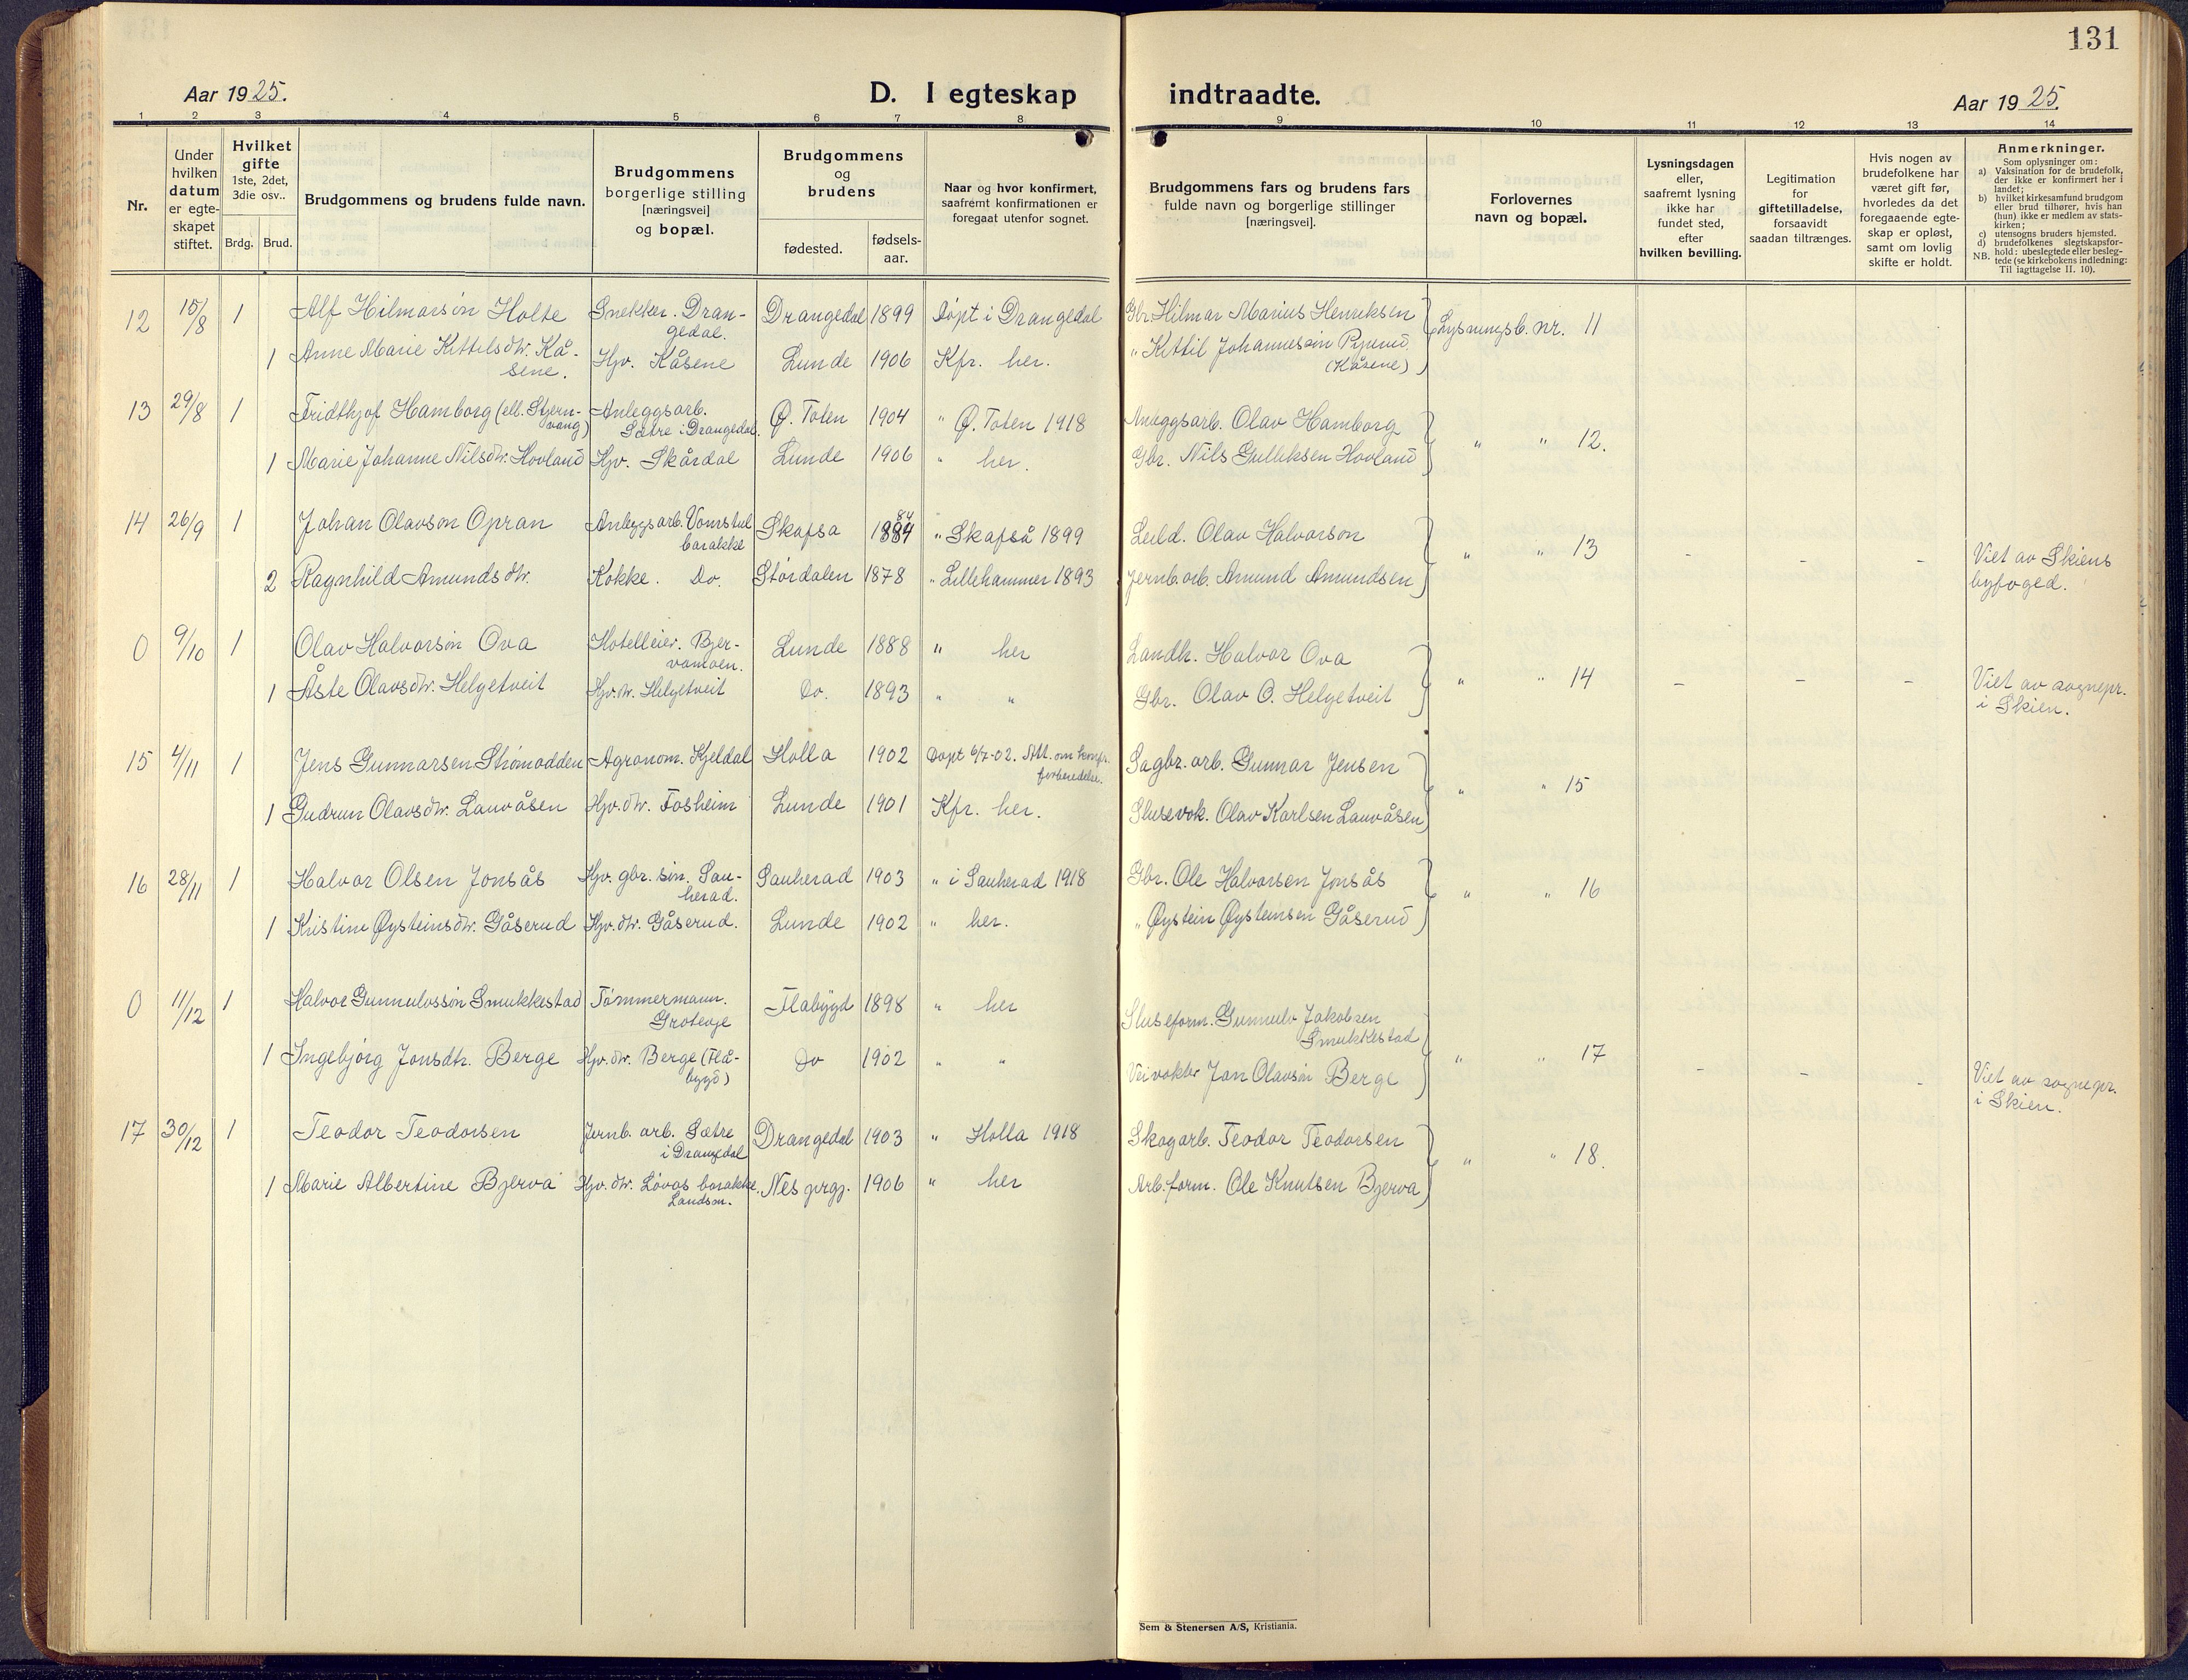 131
Aar 1925.
D. I egteskap indtraadte.
Aar 1925.
1 2 3 4 5 6 7 8 9 10 11 12 13 14
Nr.
Under hvilken datum er egte-skapet stiftet.
Hvilket gifte 1ste, 2det, 3die osv..
Brdg. Brud.
Brudgommens og brudens fulde navn.
Brudgommens borgerlige stilling [næringsvei] og bopæl.
Brudgommens og brudens
fødested.
fødsels-aar.
Naar og hvor konfirmert, saafremt konfirmationen er foregaat utenfor sognet.
Brudgommens fars og brudens fars fulde navn og borgerlige stillinger [næringsvei].
Forlovernes navn og bopæl.
Lysningsdagen eller, saafremt lysning ikke har fundet sted, efter hvilken bevilling.
Legitimation for giftetilladelse, forsaavidt saadan tiltrænges.
Hvis nogen av brudefolkene har været gift før, hvorledes da det foregaaende egte-skap er opløst, samt om lovlig skifte er holdt.
Anmerkninger.
Som oplysninger om:
a) Vaksination for de brudefolk, der ikke er konfirmert her i landet;
b) hvilket kirkesamfund brudgom eller brud tilhører, hvis han (hun) ikke er medlem av stats-kirken;
c) utensogns bruders hjemsted.
d) brudefolkenes slegtskapsfor-hold: ubeslegtede eller besleg-tede (se kirkebokens indledning: Til iagttagelse II. 10).
NB.
12 15/8 1 Alf Hilmarsön Holte Snekker. Dran-gedal. Drangedal 1899 Döpt i Drangedal Gbr. Hilmar Marius Henriksen Lysningsb. nr. 11
1 Anne Marie Kittilsdtr. Kå-sene. Hjv. Kåsene Lunde 1906 Kfr. her. " Kittil Johannesön (Kåsene)
13 29/8 1 Fridthjof Hamborg (ell. Stjern-vang) Anleggsarb. Sætre i Drangedal. Ø. Toten 1904 " Ø. Toten 1918 Anleggsarb. Olav Hamborg " " 12.
1 Marie Johanne Nilsdtr. Hovland Hjv. Skårdal Lunde 1906 " her. Gbr. Nils Gulliksen Hovland
14 26/9 1 Johan Olavson Opran Anlegsarb. Vomstul barakke Skafsa 1884 84 " Skafså 1899 Leild. Olav Halvorson " " 13 - - - Viet av Skiens byfoged.
2 Ragnhild Amundsdtr. Kokke. Do. Stördalen 1878 " Lillehammer 1893 Jernb. arb. Amund Amundsen
0 9/10 1 Olav Halvorsön Ova Hotelleier. Bjer-vamoen. Lunde 1888 " her Landh. Halvor Ova " " 14 - - - Viet av sognepr. i Skien.
1 Åste Olavsdtr. Helgetveit Hjv. dtr. Helgetveit Do. 1893 " " Gbr. Olav O. Helgetveit
15 4/11 1 Jens Gunnarsen Strömodden Agronom. Kjeldal Holla 1902 Döpt 6/7-02. Att. om konf. forberedelse. Sagbr. arb. Gunnar Jensen " " 15
1 Gudrun Olavsdtr. Lauvåsen Hjv. dtr. Fosheim Lunde 1901 Kfr. her. Slusevok. Olav Karlsen Lauvåsen
16 28/11 1 Halvor Olsen Jonsås Hjv. gbr. sön. Sau-herad. Sauherad 1903 " i Sauherad 1918 Gbr. Ole Halvorsen Jonsås " " 16
1 Kristine Øysteinsdtr. Gåserud Hjv. dtr. Gåserud. Lunde 1902 " her. " Øystein Øysteinsen Gåserud
0 11/12 1 Halvor Gunnulvssön Smukkestad Tömmermann. Groteøje Flabygd 1898 " her Sluseform. Gunnulv Jakobsen Smukkestad " " 17 - - - Viet av sognepr. i Skien.
1 Ingebjörg Jonsdtr. Berge Hjv. dtr. Berge (Flå-bygd) Do 1902 " " Veivokter Jon Olavsön Berge
17 30/12 1 Teodor Teodorsen Jernb. arb. Sætre i Drangedal Drangedal 1903 " Holla 1918 Skogarb. Teodor Teodorsen " " 18.
1 Marie Albertine Bjerva Hjv. dtr. Lövås barakke. Landsm. Nes prgj. 1906 " her Arb. form. Ole Knutsen Bjerva
Sem & Stenersen A/S, Kristiania.